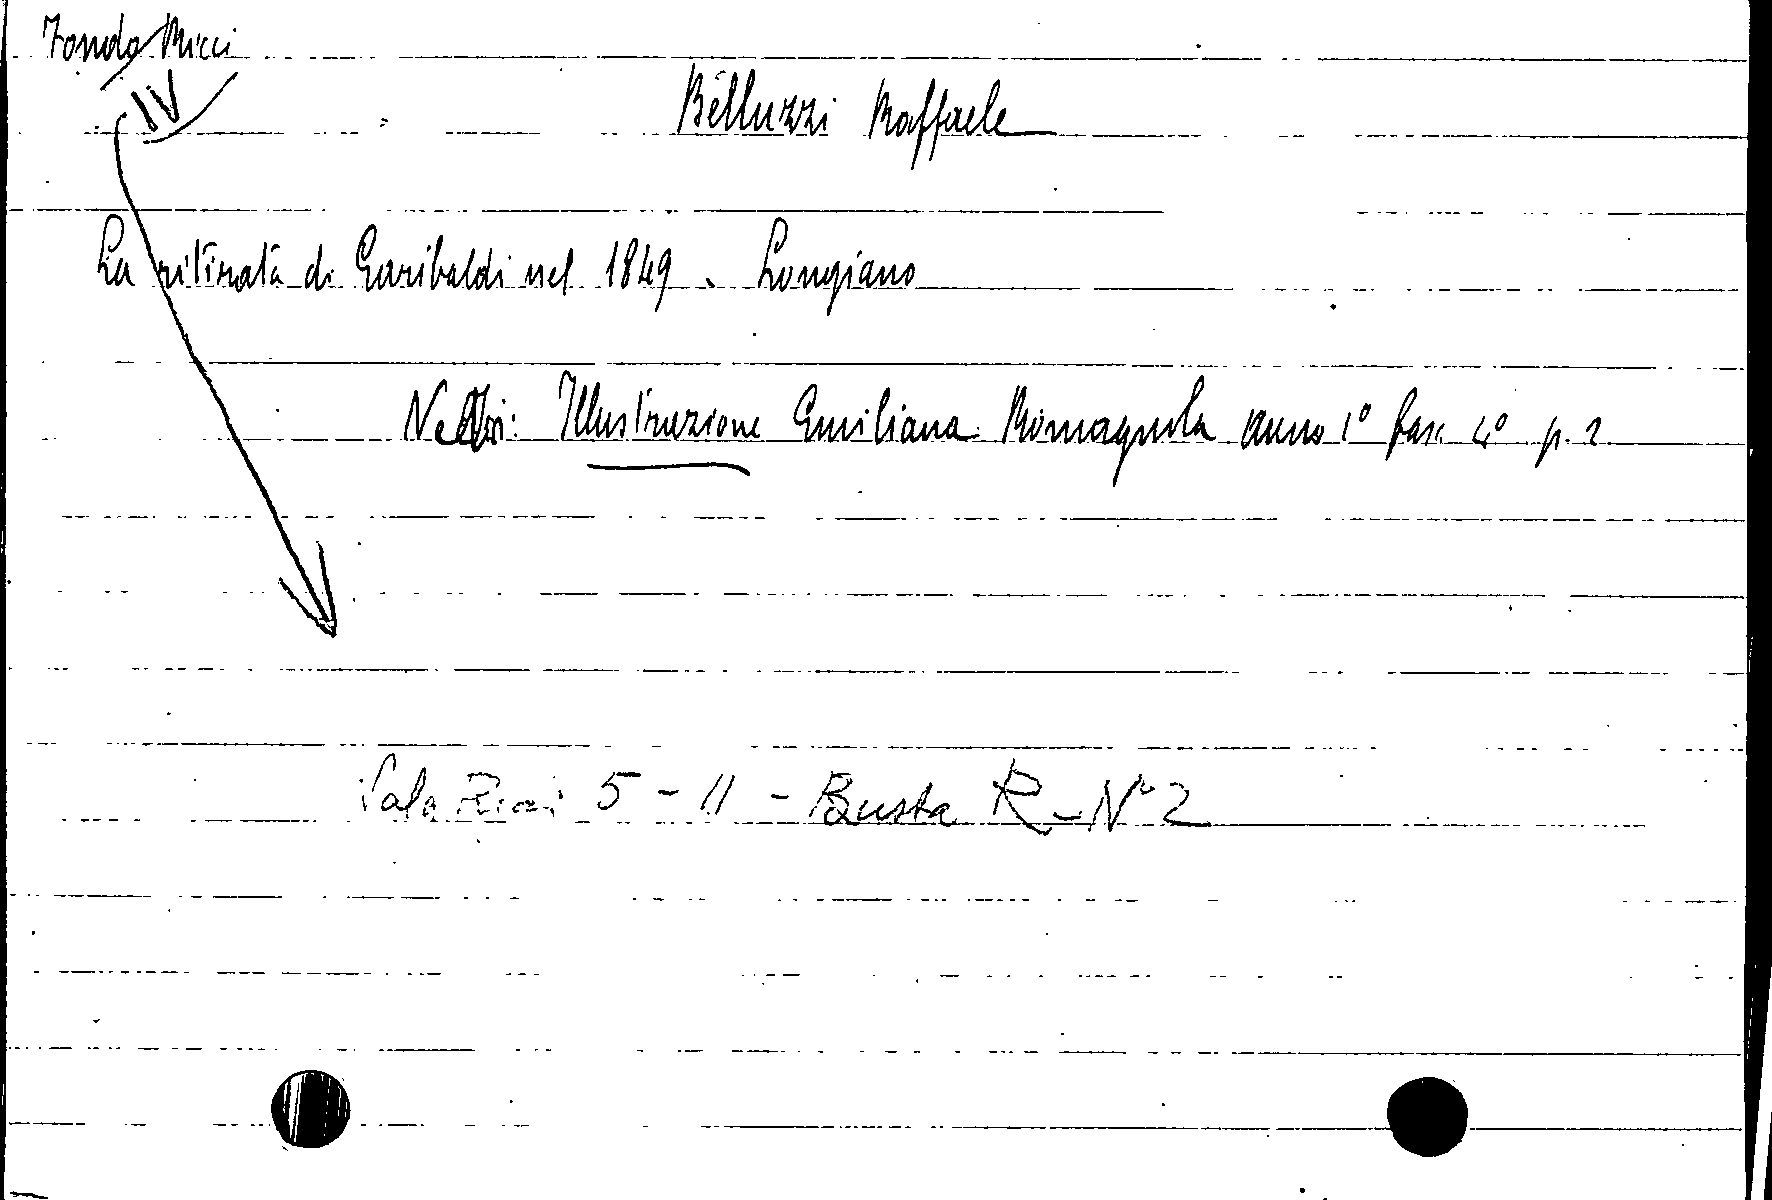 Fondo Ricci
IV
Belluzzi Raffaele
La ritirata di Garibaldi nel 1849. Longiano
Illustrazione Emiliana Romagnola anno 1° fasc. 4° p. 2
Sala Ricci 5 - 11 - Busta R - N° 2